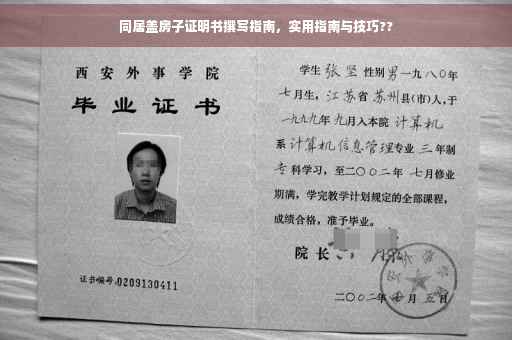 同居盖房子证明书撰写指南，实用指南与技巧??
西安外事学院
毕业证书
证书编号:0209130411
学生 张坚 性别 男 一九八〇年
七月生，江苏省 苏州县(市)人,于
一九九九年 九月入本院 计算机
系 计算机信息管理专业 三 年制
专 科学习，至二〇〇二年 七月修业
期满，学完教学计划规定的全部课程，
成绩合格，准予毕业。
院长
二〇〇二年 七 月 五 日